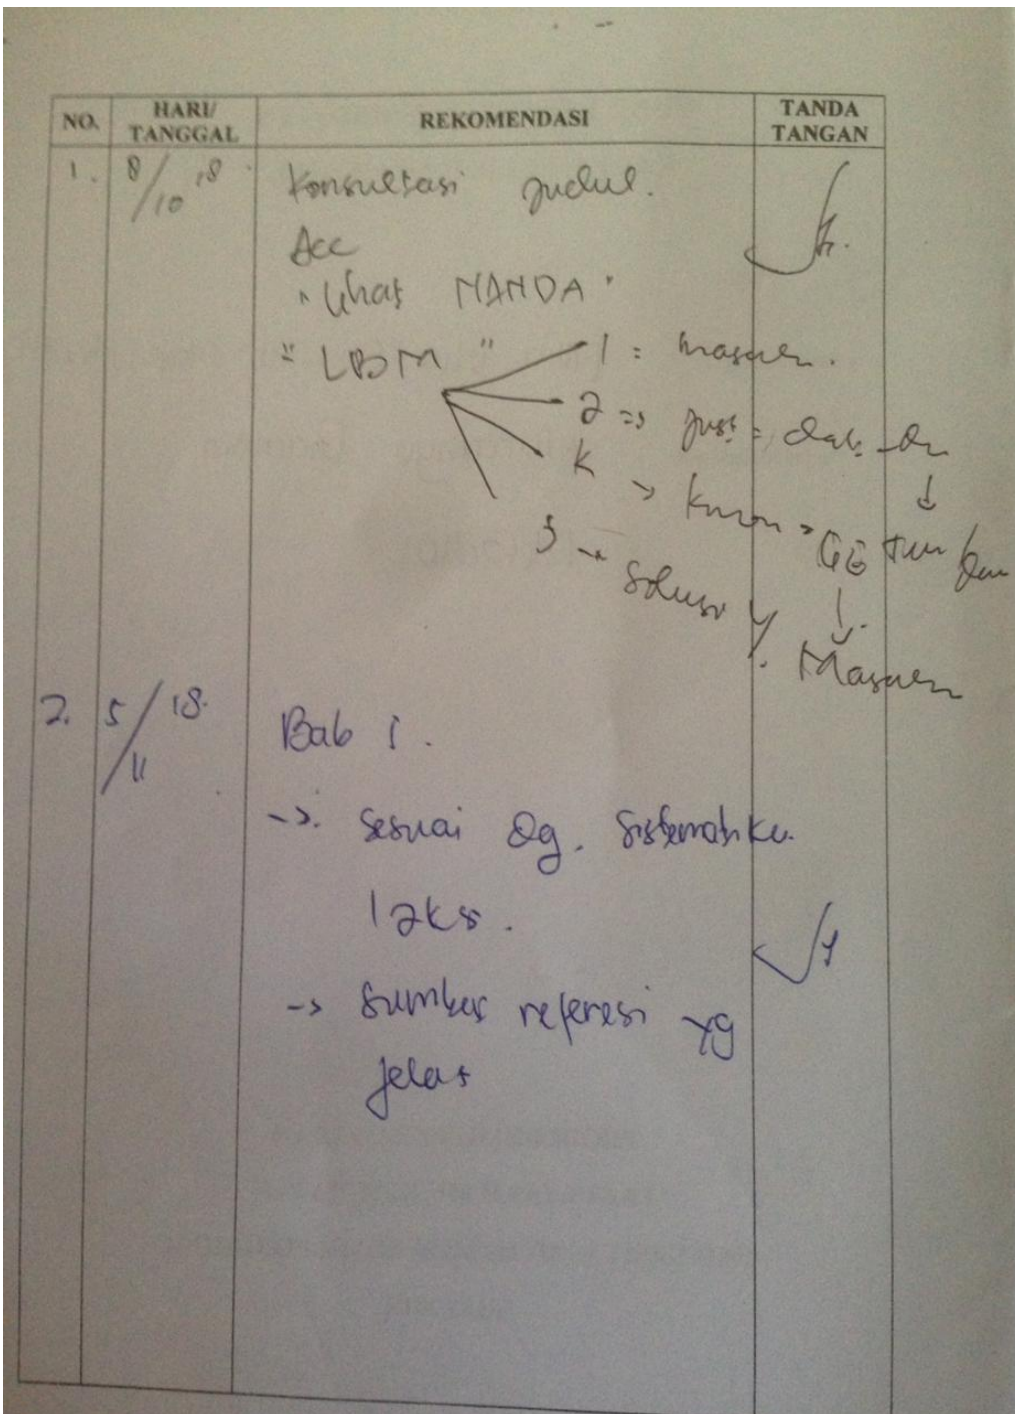 NO. HARI/ TANGGAL REKOMENDASI TANDA TANGAN
1. 8/10 '18 Konsultasi judul.
Acc
"Lihat NANDA"
"LBM" 1 = masalah.
2 => just = data
k -> kron
S -> Solusi
Masalah
2. 5/11 '18. Bab 1.
->. Sesuai dg. Sistematika
->  sumber referesi yg
jelas